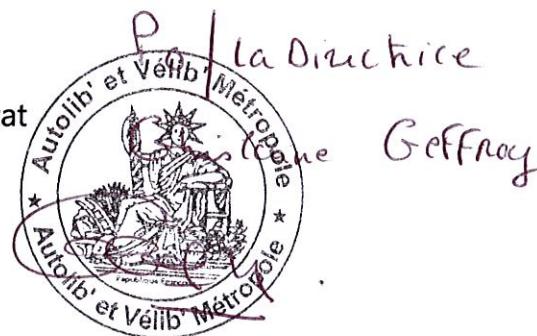 P. / la Directrice
rat
Geffroy
Autolib' et Vélib' Métropole
République Française
Autolib' et Vélib' Métropole